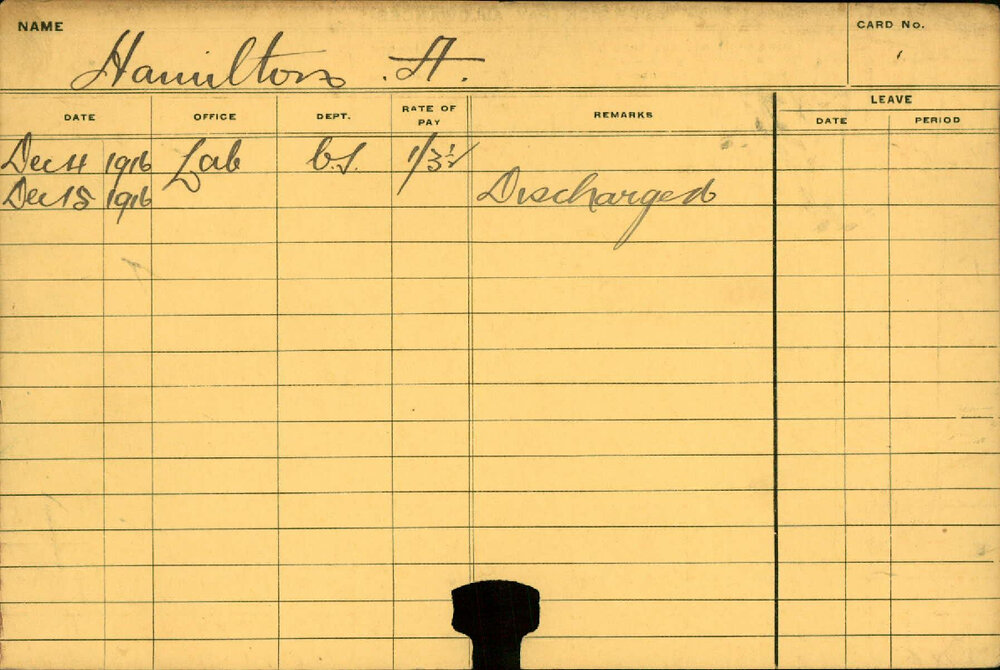 NAME
CARD No.
Hamilton .A.
DATE OFFICE DEPT. RATE OF PAY REMARKS LEAVE
DATE PERIOD
Dec 4 1916 Lab C.S. 1/3½
Dec 15 1916 Discharged